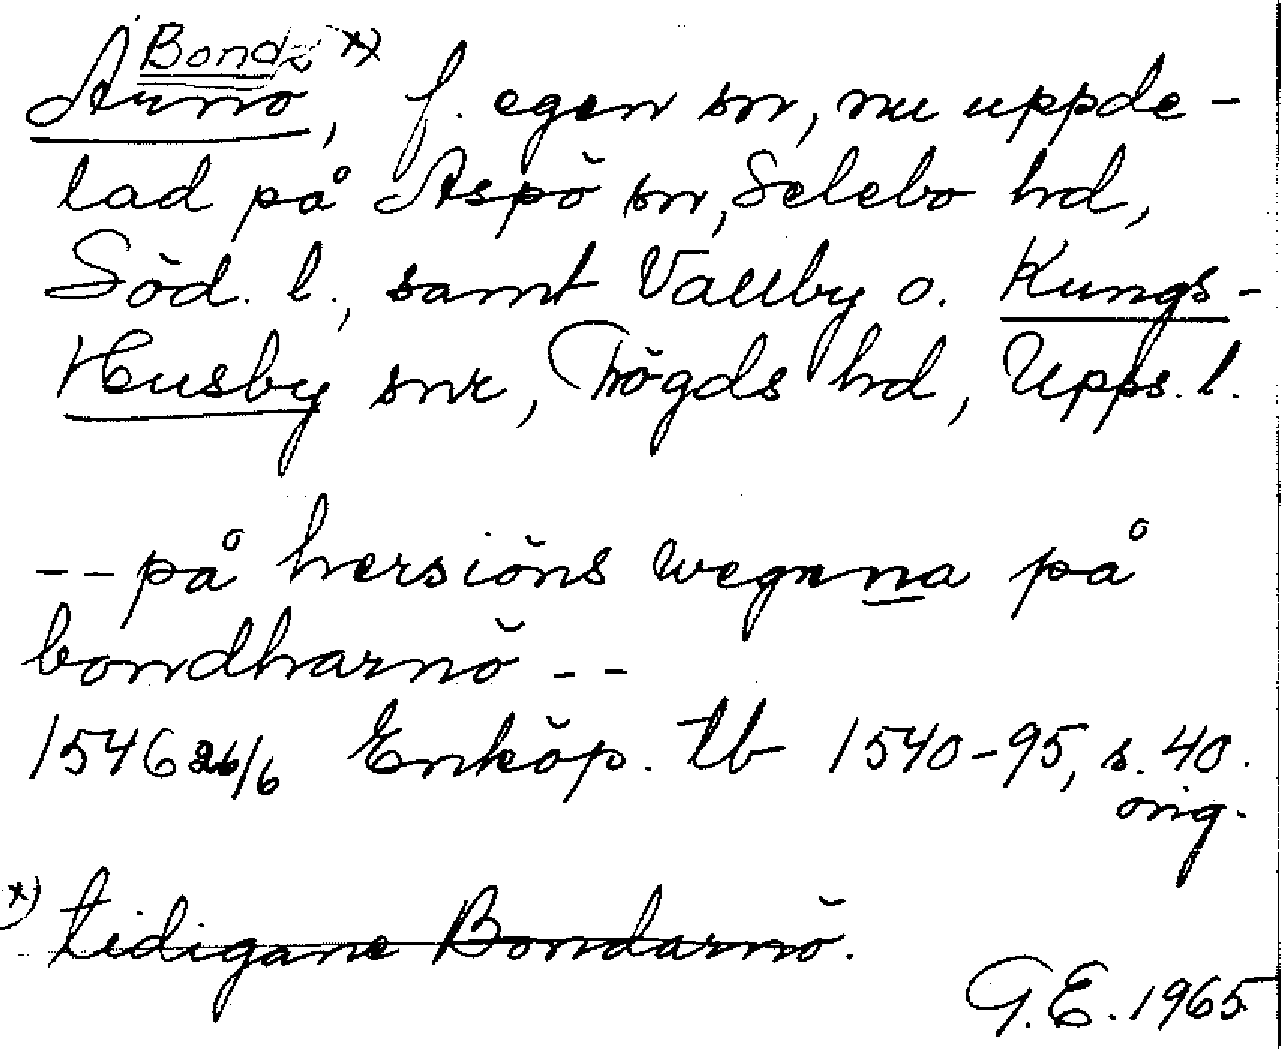 Bond- x)
Arnö, f. egen sn, nu uppde-
lad på Aspö sn, Selebo hd,
Söd. l., samt Vallby o. Kungs-
Husby snr, Trögds hd, Upps. l.
-- på hersiöns wegnna på
bondharnö --
1546 26/6 Enköp. tb 1540-95, s. 40.
orig.
x) tidigare Bondarnö.
G.E. 1965